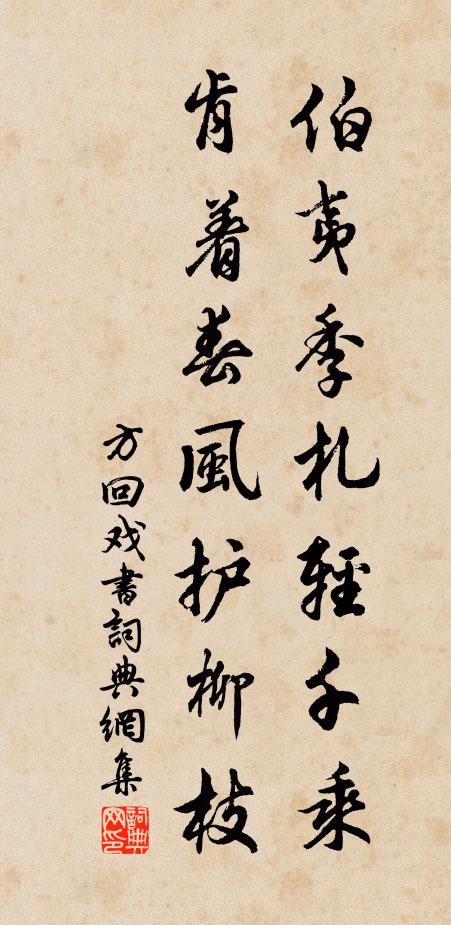 伯夷季札輕千乘
肯着春風护柳枝
方回戏書詞典網集
詞典网印